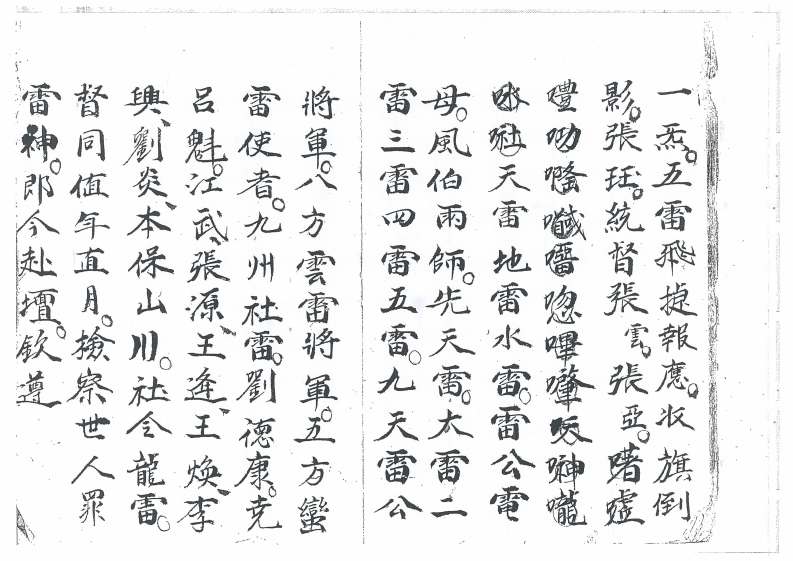 一炁。五雷飛捷報應。收旗倒
影。張珏。統督張雲。張亞。啫噓
㗲呦㗭囐噆唿嗶㘉㕮呻嚨
咏𠱀天雷地雷水雷。雷公電
母。風伯雨師。先天雷。太雷二
雷三雷四雷五雷。九天雷公
將軍。八方雲雷將軍。五方蠻
雷使者。九州社雷。劉德康。堯
呂魁。江武、張源、王逢、王煥、李
興、劉炎、本保山川。社令龍雷。
督同值年直月。撿察世人罪
雷神。即今赴壇。欽遵